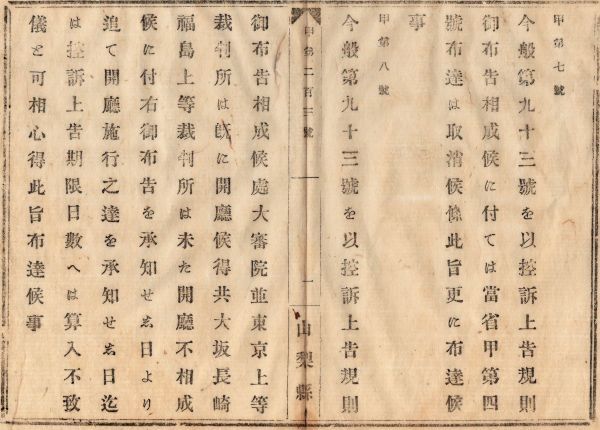 甲第七號
今般第九十三號を以控訴上告規則
御布告相成候に付ては當省甲第四
號布達は取消候條此旨更に布達候
事
甲第八號
今般第九十三號を以控訴上告規則
甲第二百三號
一
山梨縣
御布告相成候處大審院並東京上等
裁判所は既に開廳候得共大坂長崎
福島上等裁判所は未た開廳不相成
候に付右御布告を承知せる日より
追て開廳施行之達を承知せる日迄
は控訴上告期限日數へは算入不致
儀と可相心得此旨布達候事